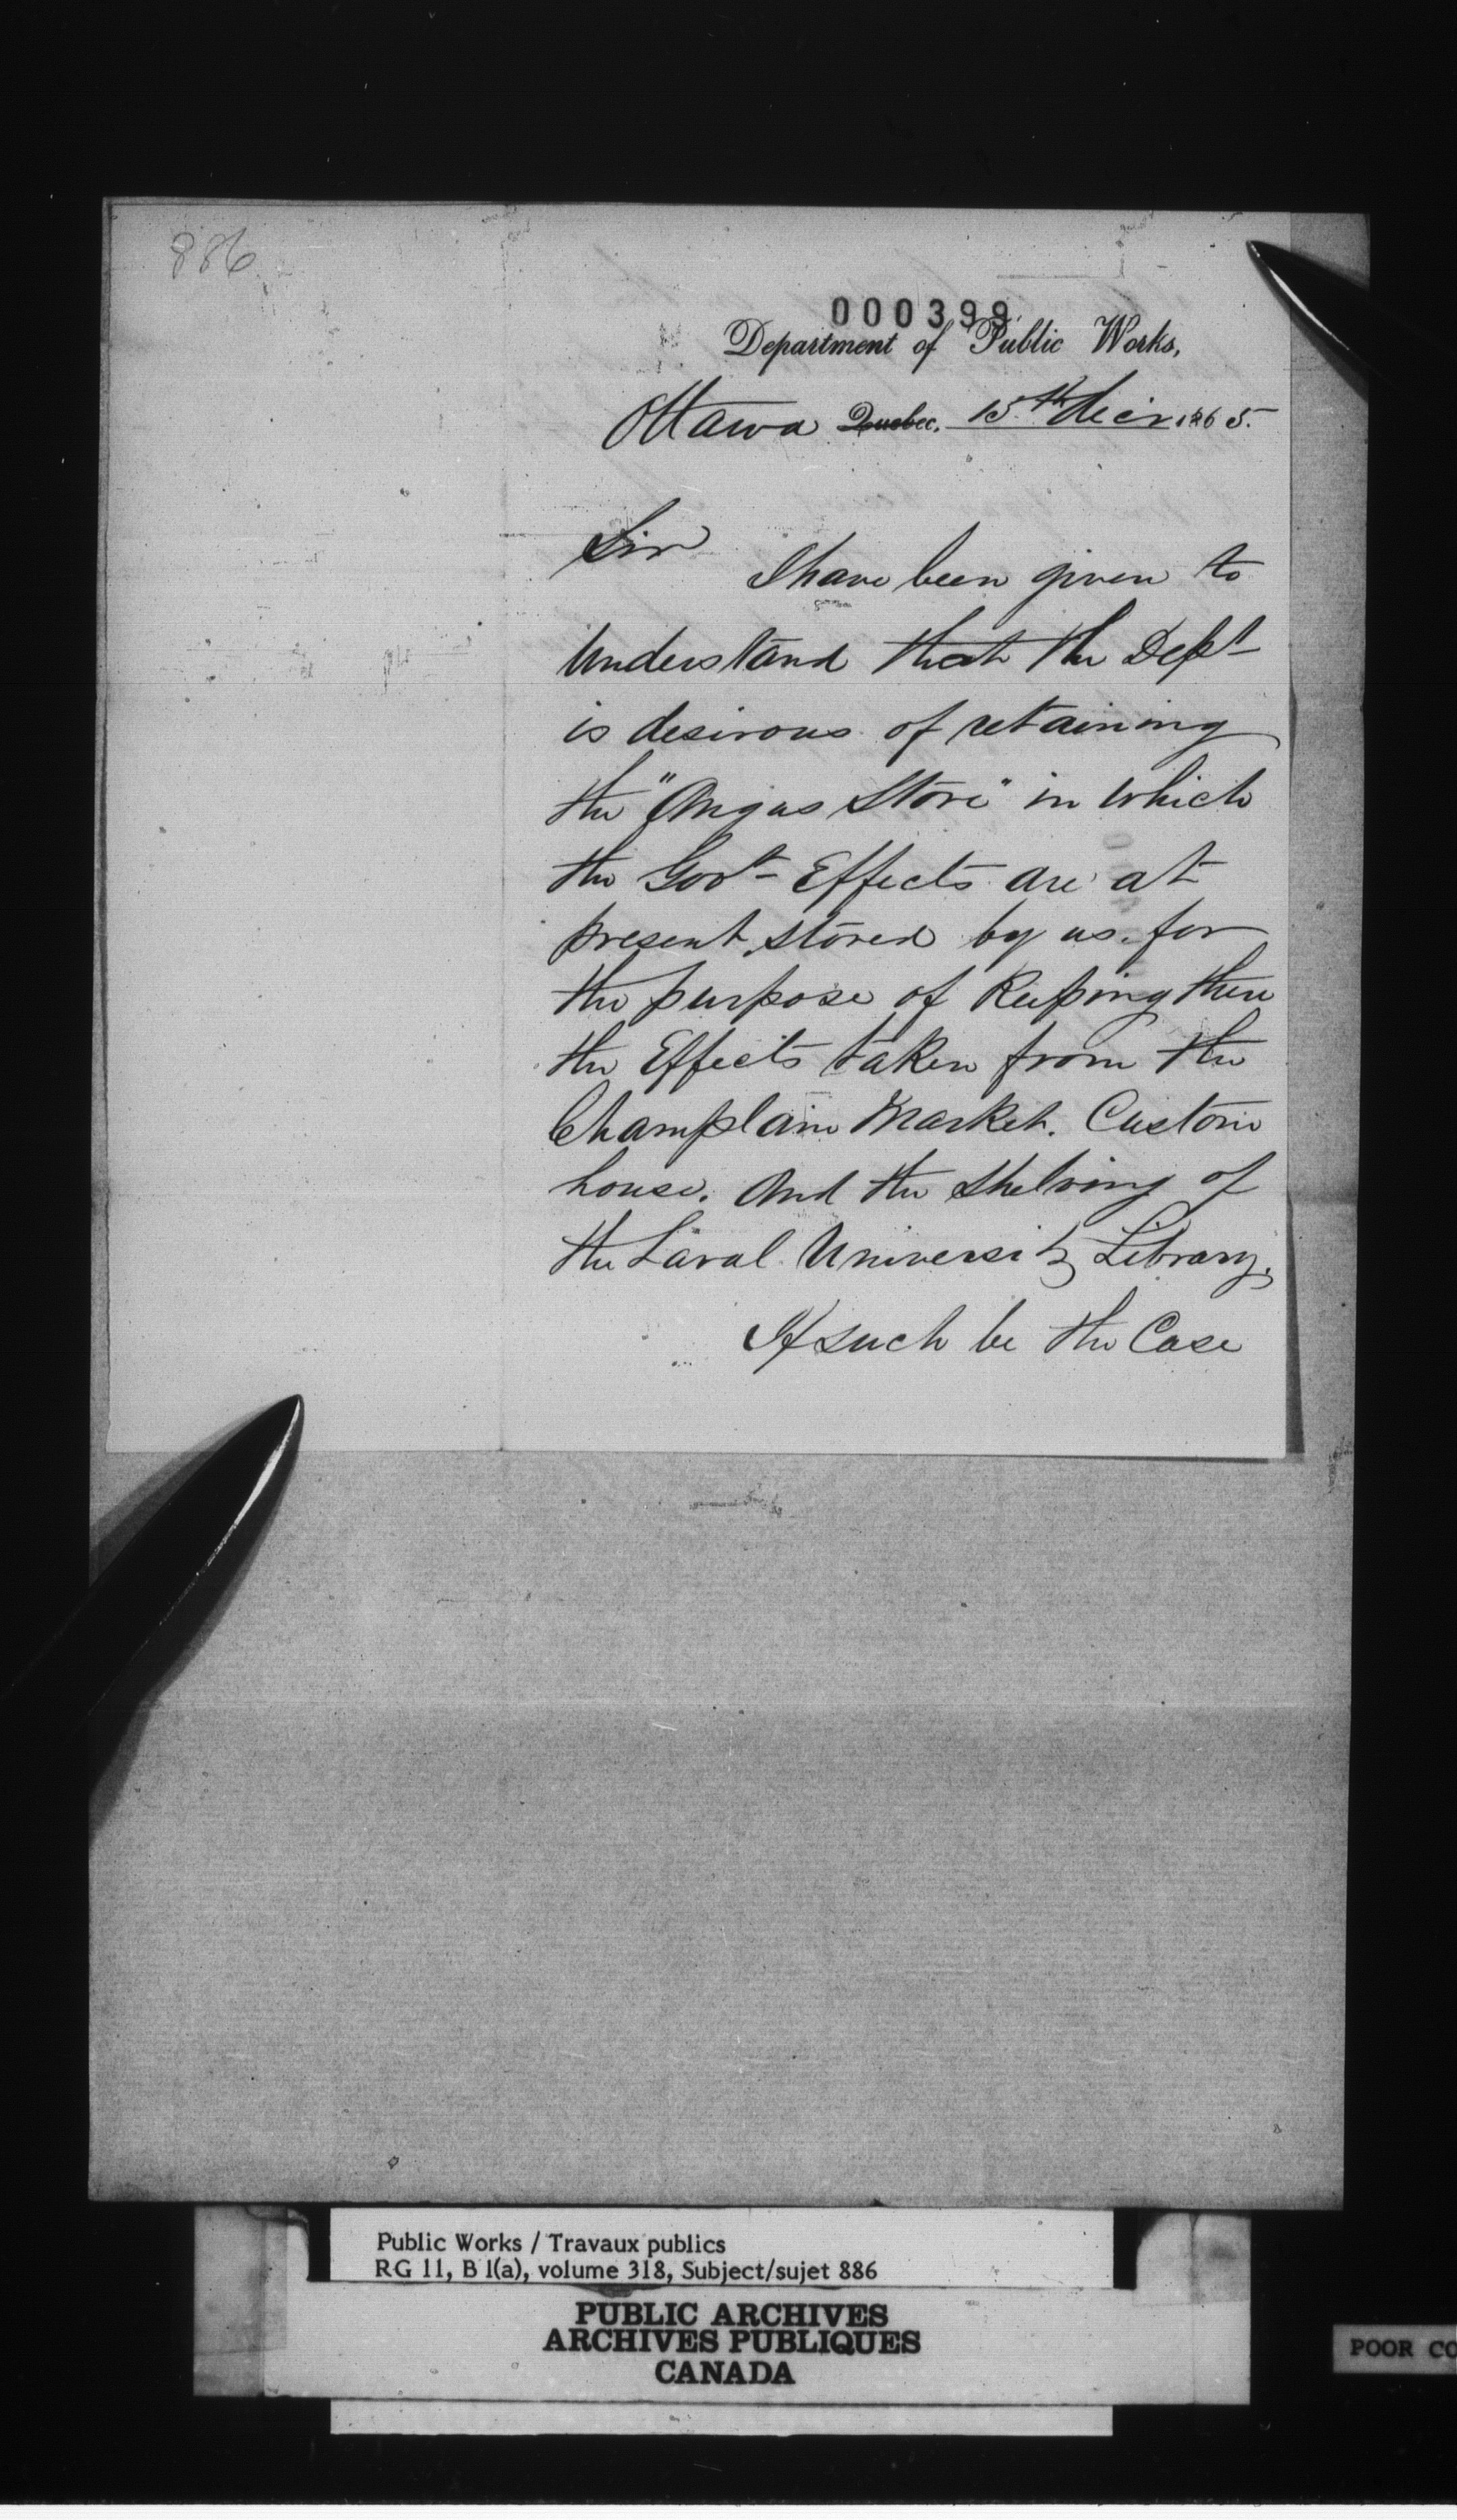 886
000399
Department of Public Works,
Ottawa Quebec, 15th Decr 1865.
Sir
I have been given to
Understand that the Dept
is desirous of retaining
the "Angus Store" in which
the Govt Effects are at
present stored by us. for
the purpose of Keeping there
the Effects taken from the
Champlain Market. Custom
house. And the Shelving of
the Laval University Library.
If such be the Case
Public Works / Travaux publics
RG 11, B 1(a), volume 318, Subject/sujet 886
PUBLIC ARCHIVES
ARCHIVES PUBLIQUES
CANADA
POOR CO